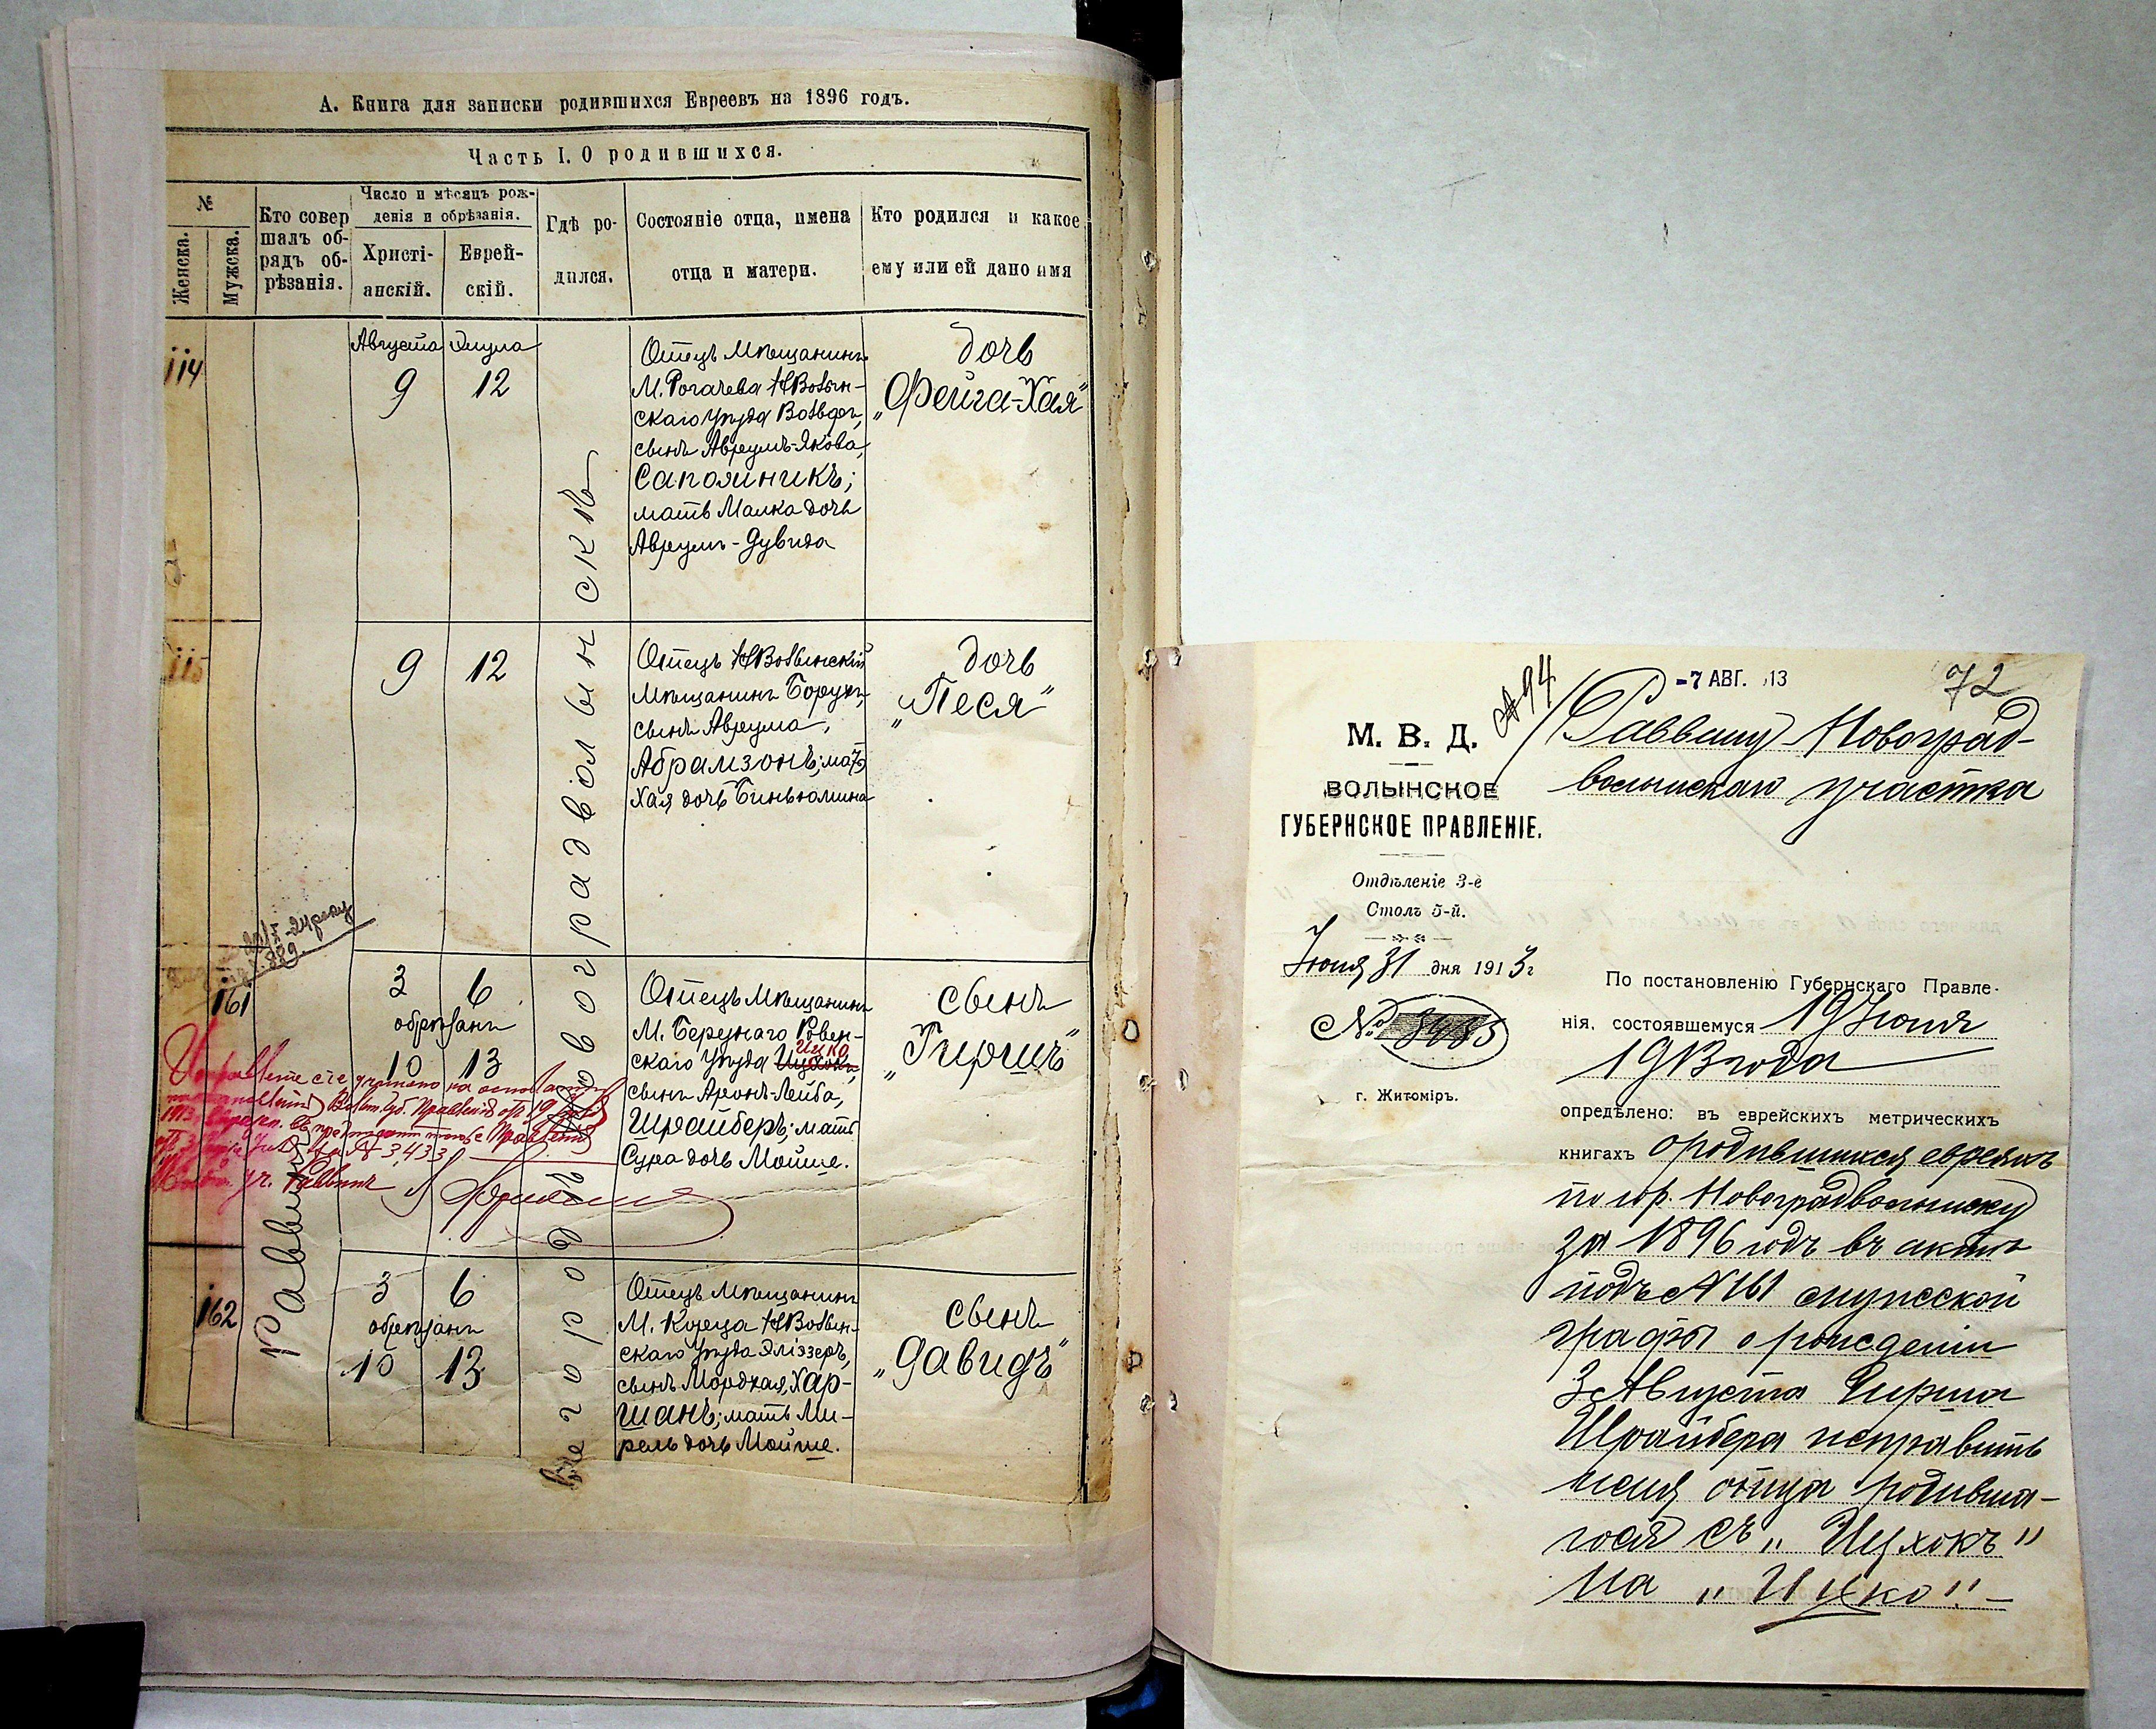 А. Книга для записки родившихся Евреевъ на 1896 годъ.
Часть I. О родившихся.
№
Женска.
Мужска.
Кто совер
шалъ об-
рядъ об-
рѣзанія.
Число и мѣсяцъ рож-
денія и обрѣзанія.
Христі-
анскій.
Еврей-
скій.
Гдѣ ро-
дился.
Состояніе отца, имена
отца и матери.
Кто родился и какое
ему или ей дано имя
114
Августа
9
Элула
12
Отецъ Мѣщанинъ
М. Рогачева НВолын-
скаго Уѣзда
сынъ Аврумъ-Якова,
Сапожникъ;
мать Малка дочь
Аврумъ-Дувида
дочь
„Фейга-Хая"
115
9
12
Отецъ НВолынскій
Мѣщанинъ Борухъ,
сынъ Аврума,
Абрамзонъ; мать
Хая дочь Биньюмина
дочь
„Песя"
161
3
6
обрѣзанъ
10
13
Отецъ Мѣщанинъ
М. Березнаго Ровен-
скаго Уѣзда Ицхокъ, Ицко
сынъ Аронъ-Лейба,
Шрайберъ; мать
Сура дочь Мойше.
сынъ
„Гиршъ"
Исправленіе сіе учинено на основаніи
постановленія Волын. Губ. Правленія отъ 19 Іюня
1913
за № 3433
Раввинъ
162
3
6
обрѣзанъ
10
13
Отецъ Мѣщанинъ
М. Кореца НВолын-
скаго Уѣзда Эліэзеръ,
сынъ Мордхая, Хар-
шанъ; мать Ми-
рель дочь Мойше.
сынъ
„Давидъ"
Раввинъ
въ городѣ Новоградволынскѣ
№ 94
-7 АВГ. 13
72
М. В. Д.
ВОЛЫНСКОЕ
ГУБЕРНСКОЕ ПРАВЛЕНІЕ.
Отдѣленіе 3-е
Столъ 5-й.
Іюля 31 дня 1913 г
№
г. Житоміръ.
Раввину Новоград-
волынскаго участка
По постановленію Губернскаго Правле-
нія, состоявшемуся 19 Іюня
1913 года
опредѣлено: въ еврейскихъ метрическихъ
книгахъ о родившихся евреяхъ
по гор. Новоградволынску
за 1896 годъ въ актѣ
подъ № 161 мужеской
графы о рожденіи
3 Августа Гирша
Шрайбера исправить
имя отца родивша-
гося съ „Ицхокъ"
на „Ицко".-